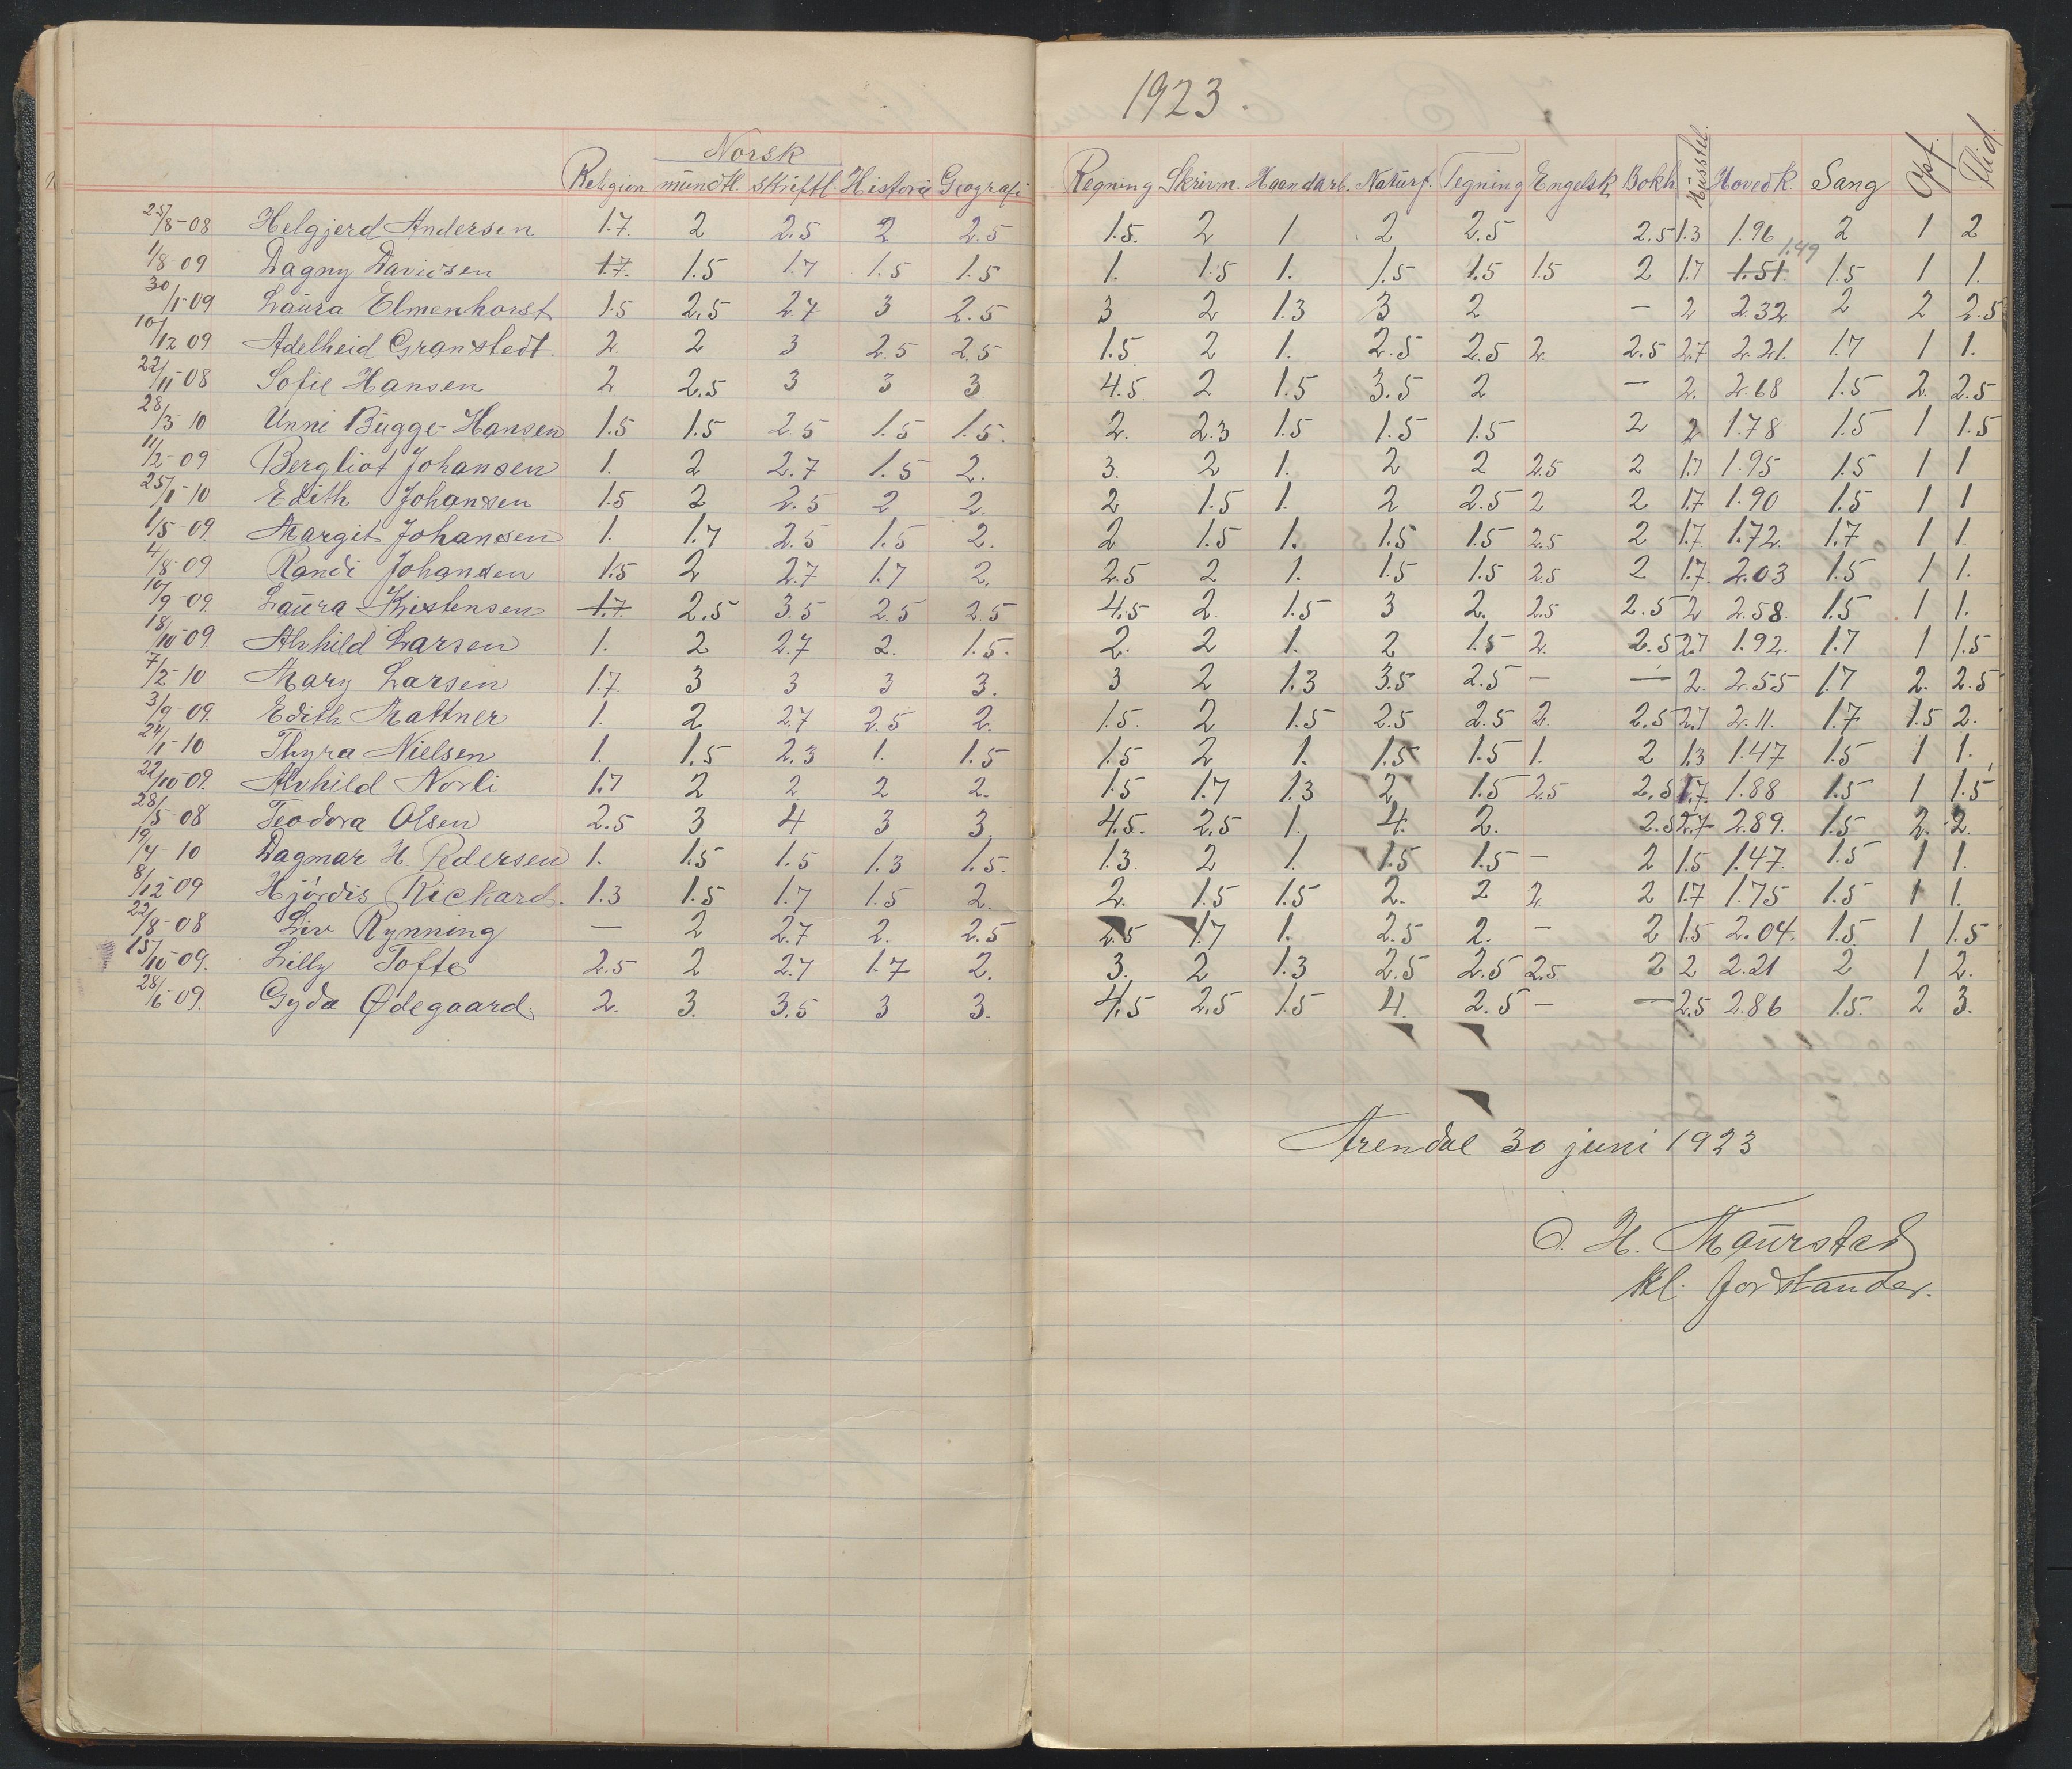 1923.
Norsk
Religion mündtl. skriftl. Historie Geografi Regning Skrivn. Haandarb. Naturf. Tegning Engelsk Bokh. Husstel. Hovedk. Sang Opf. Flid.
25/8-08 Helgjerd Andersen 1.7. 2 2.5 2 2.5 1.5. 2 1 2 2.5 2.5 1.3 1.96 2 1 2
1/8-09 Dagny Davidsen 1.7. 1.5 1.7 1.5 1.5 1. 1.5 1. 1.5 1.5 1.5 2 1.7 1.51. 1.49 1.5 1 1.
30/1-09 Laüra Elmenhorst 1.5 2.5 2.7 3 2.5 3 2 1.3 3 2 – 2 2.32 2 2 2.5
10/12 09 Adelheid Granstedt. 2. 2 3 2.5 2.5 1.5. 2 1. 2.5 2.5 2. 2.5 2.7 2.21. 1.7 1 1.
22/11-08 Sofie Hansen 2 2.5 3 3 3 4.5. 2 1.5 3.5 2 – 2. 2.68 1.5 2. 2.5
28/3 10 Unni Bügge-Hansen 1.5 1.5 2.5 1.5 1.5. 2. 2.3 1.5 1.5 1.5 2 2 1.78 1.5 1 1.5
11/2-09 Bergliot Johansen 1. 2 2.7 1.5 2. 3. 2 1. 2 2 2.5 2 1.7 1.95 1.5 1 1
25/1-10 Edith Johansen 1.5 2 2.5 2 2. 2 1.5 1. 2 2.5 2 2 1.7 1.90 1.5 1 1
1/5-09. Margit Johansen 1. 1.7 2.5 1.5 2. 2 1.5 1. 1.5 1.5 2.5 2 1.7. 1.72. 1.7 1 1.
4/8-09 Randi Johansen 1.5 2 2.7 1.7 2. 2.5 2 1. 1.5 1.5 2.5 2 1.7. 2.03 1.5 1 1.
10/9-09. Laüra Kristensen 1.7. 2.5 3.5 2.5 2.5 4.5 2. 1.5 3 2. 2.5 2.5 2 2.58. 1.5 1 1.
18/10-09. Alvhild Larsen 1. 2 2.7 2. 1.5. 2. 2 1. 2 1.5 2. 2.5 2.7 1.92. 1.7 1 1.5
7/2-10 Mary Larsen 1.7. 3 3 3 3. 3 2 1.3 3.5 2.5 – – 2. 2.55 1.7 2. 2.5
3/9 09. Edith Mattner 1. 2 2.7 2.5 2. 1.5. 2 1.5 2.5 2.5 2. 2.5 2.7 2.11. 1.7 1.5 2.
24/1-10 Thyra Nielsen 1. 1.5 2.3 1. 1.5 1.5 2 1. 1.5 1.5 1. 2 1.3 1.47 1.5 1 1.
22/10 09. Alvhild Norli 1.7 2 2 2 2. 1.5 1.7 1.3 2 1.5 2.5 2.5 1.7. 1.88 1.5 1 1.5
28/5-08 Teodora Olsen 2.5 3 4 3 3. 4.5. 2.5 1. 4. 2. 2.5 2.7 2.89. 1.5 2. 2.
19/4-10 Dagmar H. Pedersen 1. 1.5 1.5 1.3 1.5. 1.3 2 1. 1.5 1.5 – 2 1.5 1.47. 1.5 1 1.
8/12-09 Hjördis Rickard. 1.3 1.5 1.7 1.5 2. 2. 1.5 1.5 2. 2 2 2 1.7 1.75 1.5 1 1.
22/8-08 Liv Rynning – 2 2.7 2. 2.5 2.5 1.7 1. 2.5 2. – 2 1.5 2.04. 1.5 1 1.5
15/10-09. Lilly Tofte 2.5 2 2.7 1.7 2. 3. 2 1.3 2.5 2.5 2.5 2 2 2.21 2 1 2.
28/6 09. Gyda Ødegaard 2. 3. 3.5 3 3. 4.5 2.5 1.5 4. 2.5 – – 2.5 2.86 1.5. 2 3.
Arendal 30 juni 1923
O. H. Maürstad
kl. forstander.